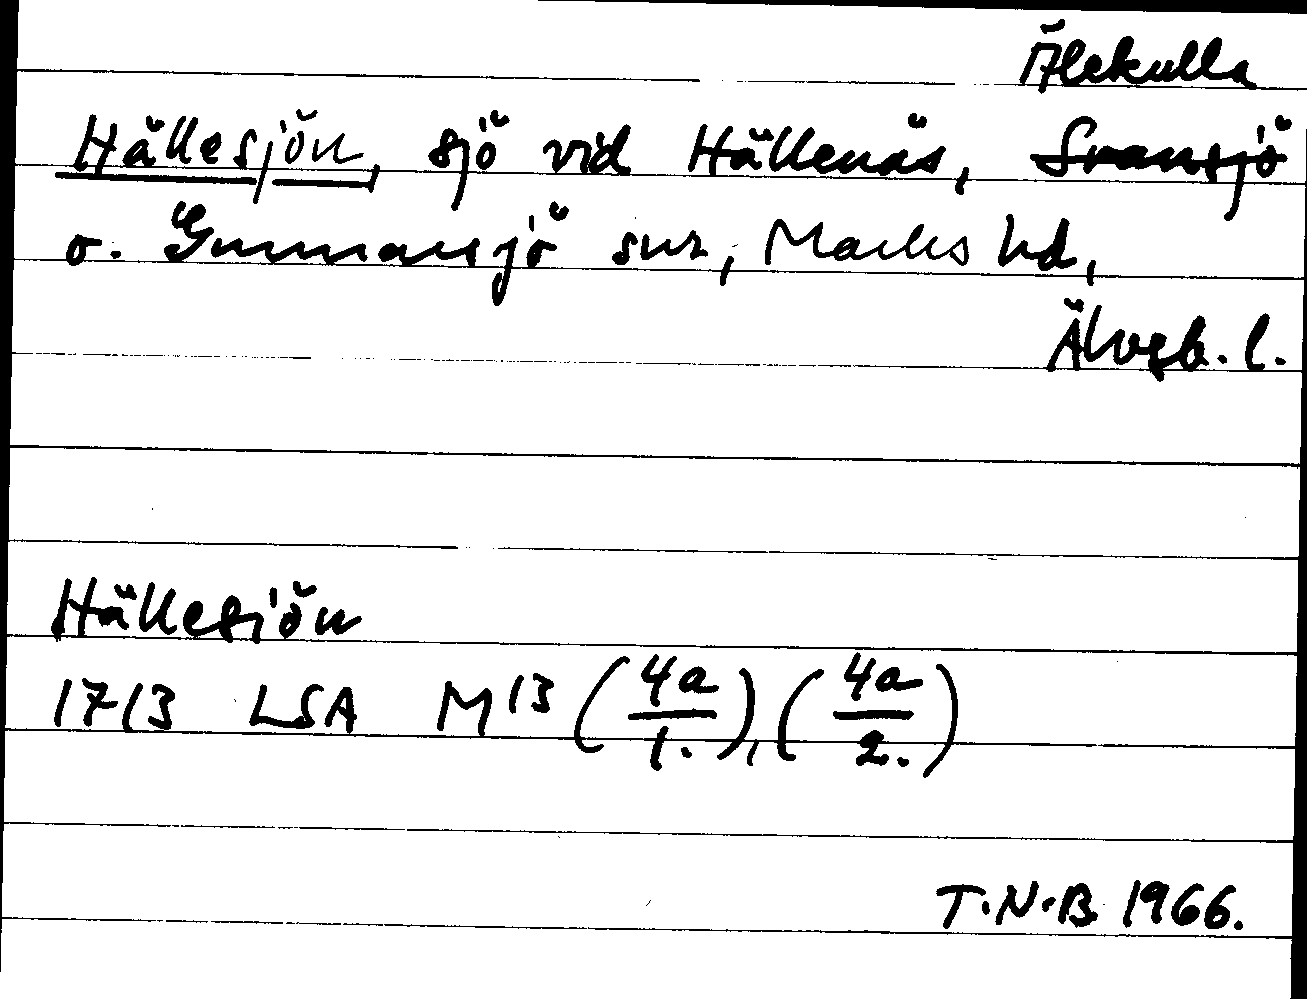 Älekulla
Hällesjön, sjö vid Hällenäs, Svansjö
o. Gunnarsjö snr, Marks hd,
Älvsb. l.
Hällesjön
1713 LSA M13 (4a/1.), (4a/2.)
T.N.B 1966.